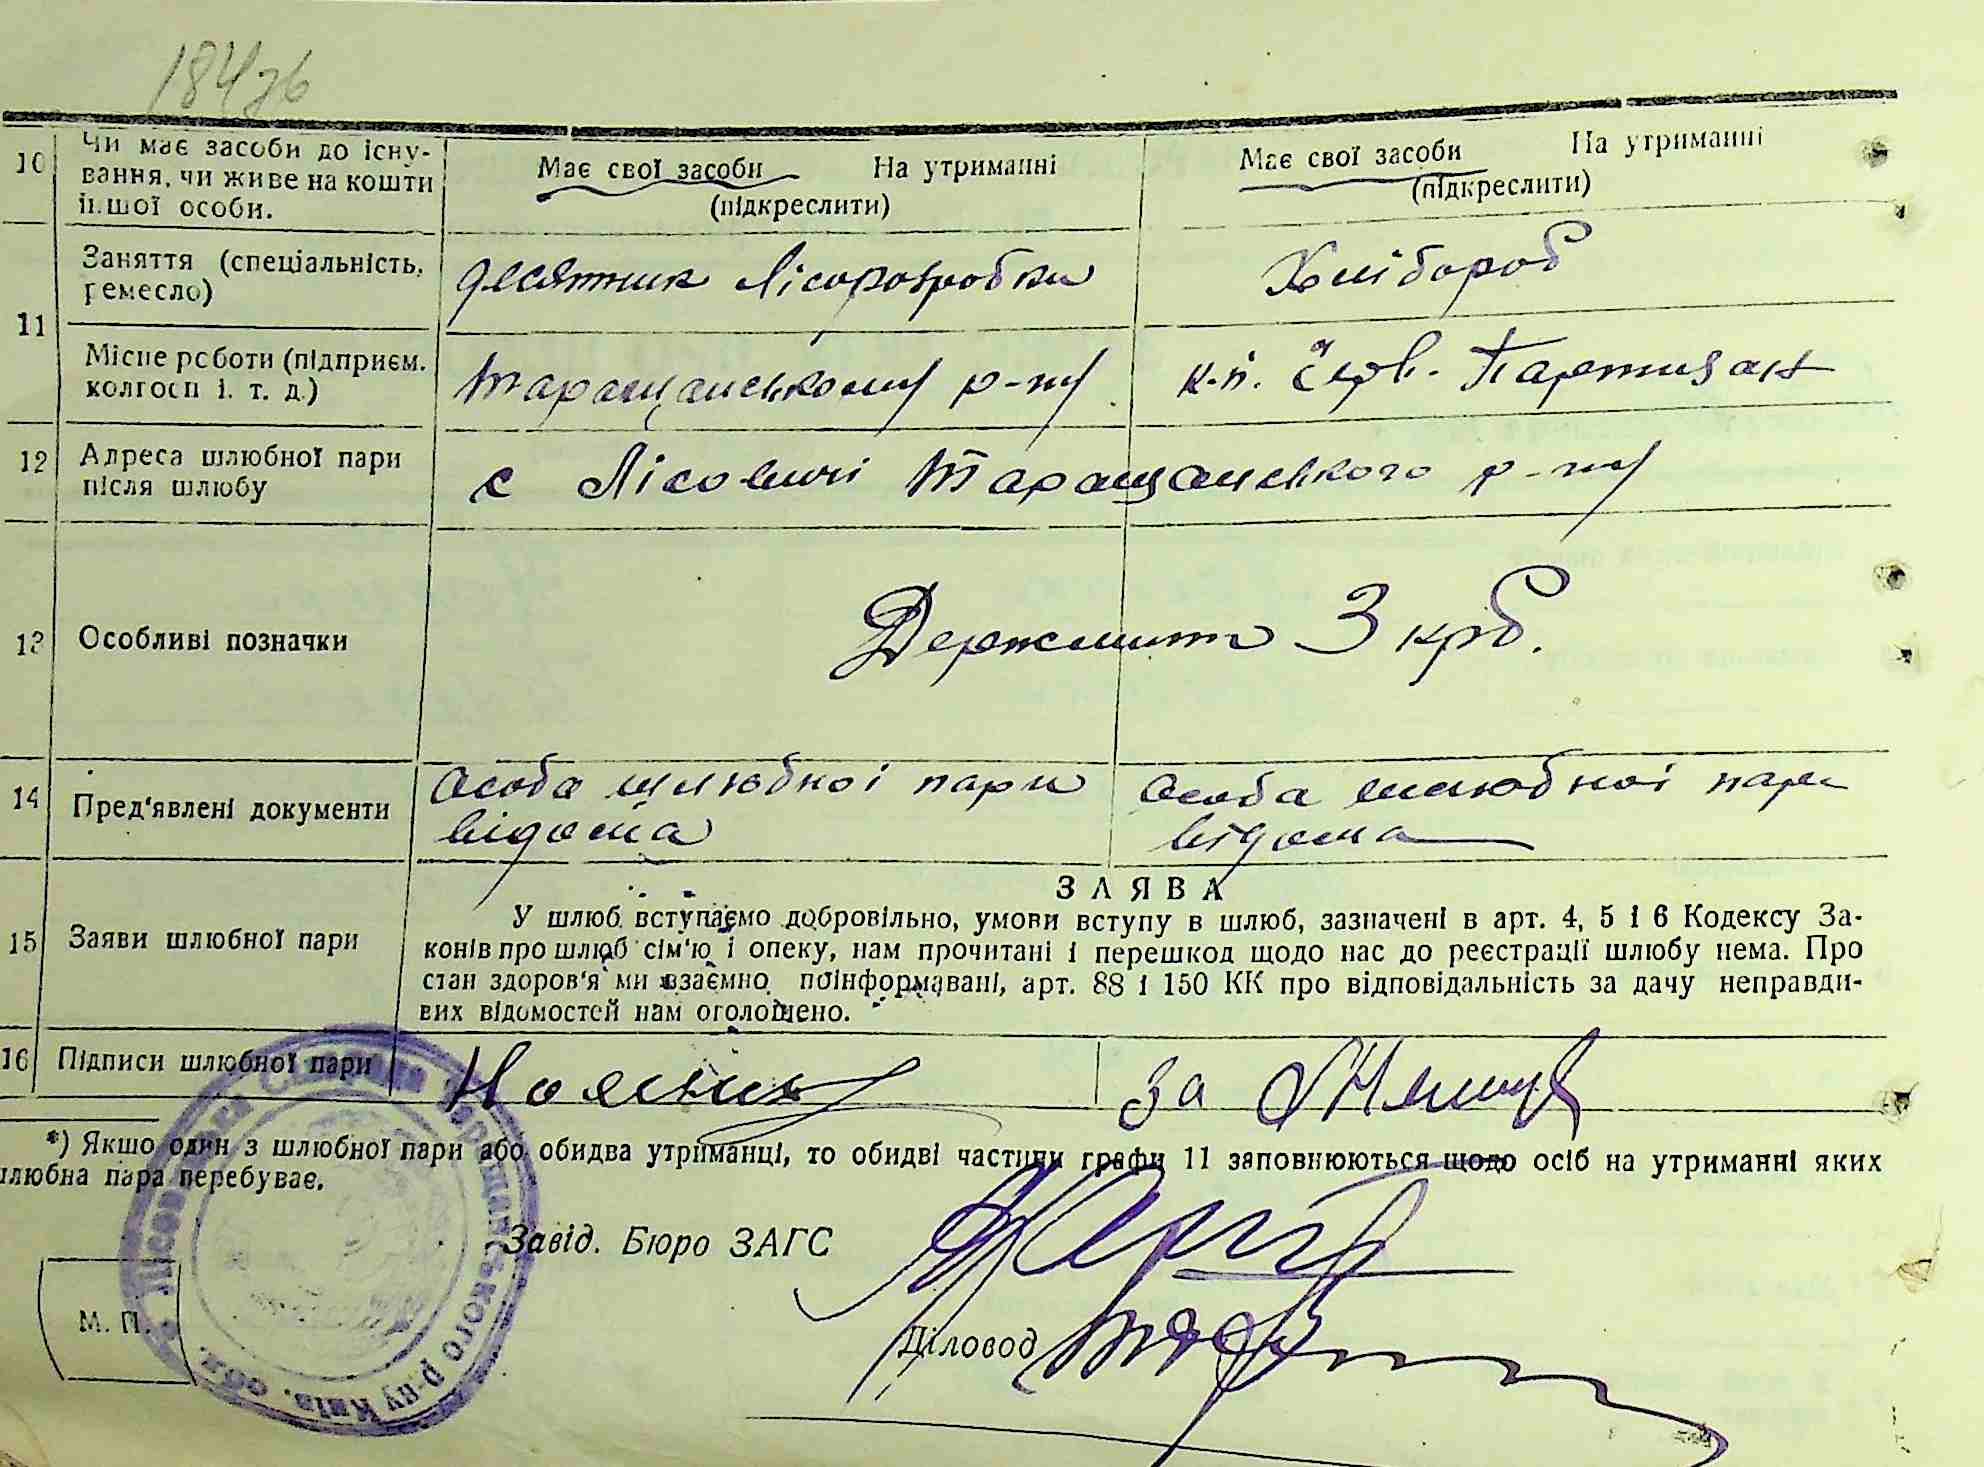 184зв
10 Чи має засоби до існу-
вання, чи живе на кошти
іншої особи.
Має свої засоби На утриманні
(підкреслити)
Має свої засоби На утриманні
(підкреслити)
11 Заняття (спеціальність,
ремесло)
десятник Лісорозробки
Хлібороб
Місце роботи (підприєм.
колгосп і. т. д.)
Таращанському р-ну
к-п. Черв. Партизан
12 Адреса шлюбної пари
після шлюбу
с Лісовичі Таращанського р-ну
13 Особливі позначки
Держмито 3 крб.
14 Пред'явлені документи
Особа шлюбної пари
відома
Особа шлюбної пари
відома
15 Заяви шлюбної пари
ЗАЯВА
У шлюб вступаємо добровільно, умови вступу в шлюб, зазначені в арт. 4, 5 і 6 Кодексу За-
конів про шлюб сім'ю і опеку, нам прочитані і перешкод щодо нас до реєстрації шлюбу нема. Про
стан здоров'я ми взаємно поінформавані, арт. 88 і 150 КК про відповідальність за дачу неправди-
вих відомостей нам оголошено.
16 Підписи шлюбної пари
за
*) Якшо один з шлюбної пари або обидва утриманці, то обидві частини графи 11 заповнюються щодо осіб на утриманні яких
шлюбна пара перебуває.
Завід. Бюро ЗАГС
Діловод
М. П.
Таращанського р-ну Київ. обл.